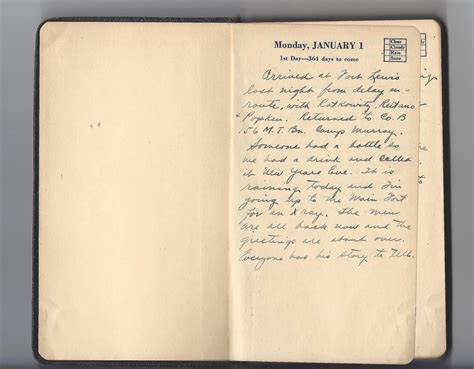 Monday, JANUARY 1
1st Day—364 days to come
Clear
Cloudy
Rain
Snow
Arrived at Fort Lewis
last night from delay en-
route, with Ratkowitz, Reitano
+ Popken. Returned to Co. B
156 M.T. Bn. Camp Murray.
Someone had a bottle so
we had a drink and called
it New Years Eve. It is
raining today and I'm
going up to the Main Fort
for an xray. The men
are all back now and the
greetings are about over.
Everyone has his story to tell.